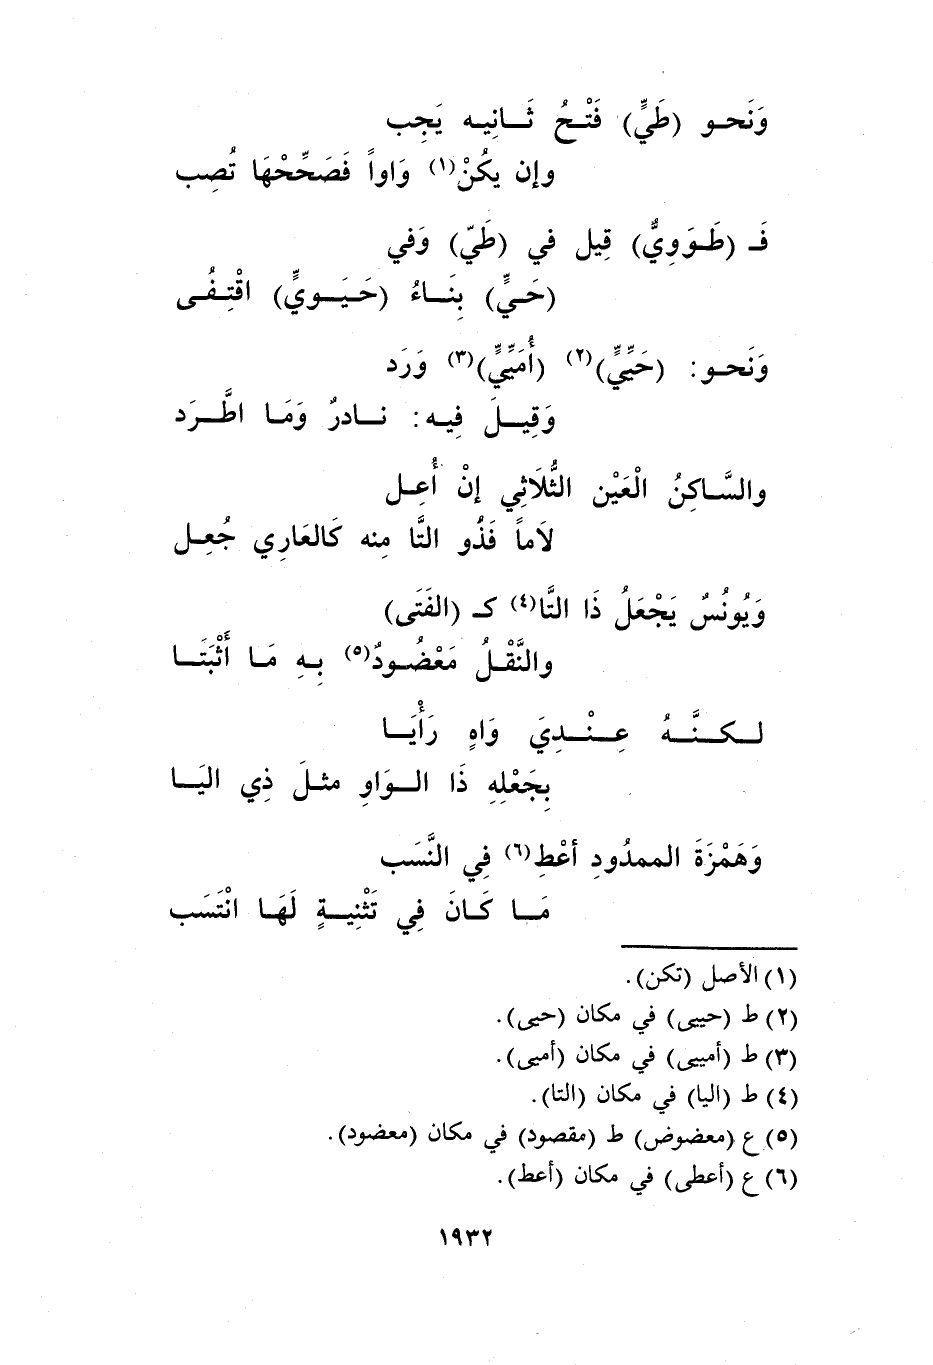 وَنَحـو (طَيٍّ) فَتْـحُ ثَـانِيه يَجِب
وإن يكُنْ(١) وَاواً فَصَحِّحْهَا تُصِب
فَـ (طَـوَوِيٌّ) قِيل في (طَيّ) وَفي
(حَـيٍّ) بِنَـاءُ (حَـيَـويٍّ) اقْتِـفُـى
وَنَحـو: (حَيِّيٍّ)(٢) (أُمَيِّيٍّ)(٣) وَرَد
وَقِيـلَ فِيـه: نـادرٌ وَمَـا اطَّـرَد
والسَّـاكِنُ الْعَيْن الثُّلَاثِي إنْ أُعِـل
لاَماً فَذُو التَّا مِنه كَالعَارِي جُعِـل
وَيُونُسٌ يَجْعَلُ ذَا التَّا(٤) كـ (الفَتَى)
والنَّقْـلُ مَعْضُـودٌ(٥) بِـهِ مَـا أَثْبَتَـا
لـكـنَّـهُ عِـنْـدِيَ وَاهٍ رَأْيَـا
بِجَعْلِهِ ذَا الـوَاوِ مثـلَ ذِي اليَـا
وَهَمْزَةَ الممدُودِ أعْطِ(٦) فِي النَّسَب
مَـا كَـانَ فِي تَثْنِيـةٍ لَهَـا انْتَسَب
(١) الأصل (تكن).
(٢) ط (حييى) في مكان (حيى).
(٣) ط (أمييى) في مكان (أميى).
(٤) ط (اليا) في مكان (التا).
(٥) ع (معضوض) ط (مقصود) في مكان (معضود).
(٦) ع (أعطى) في مكان (أعط).
١٩٣٢